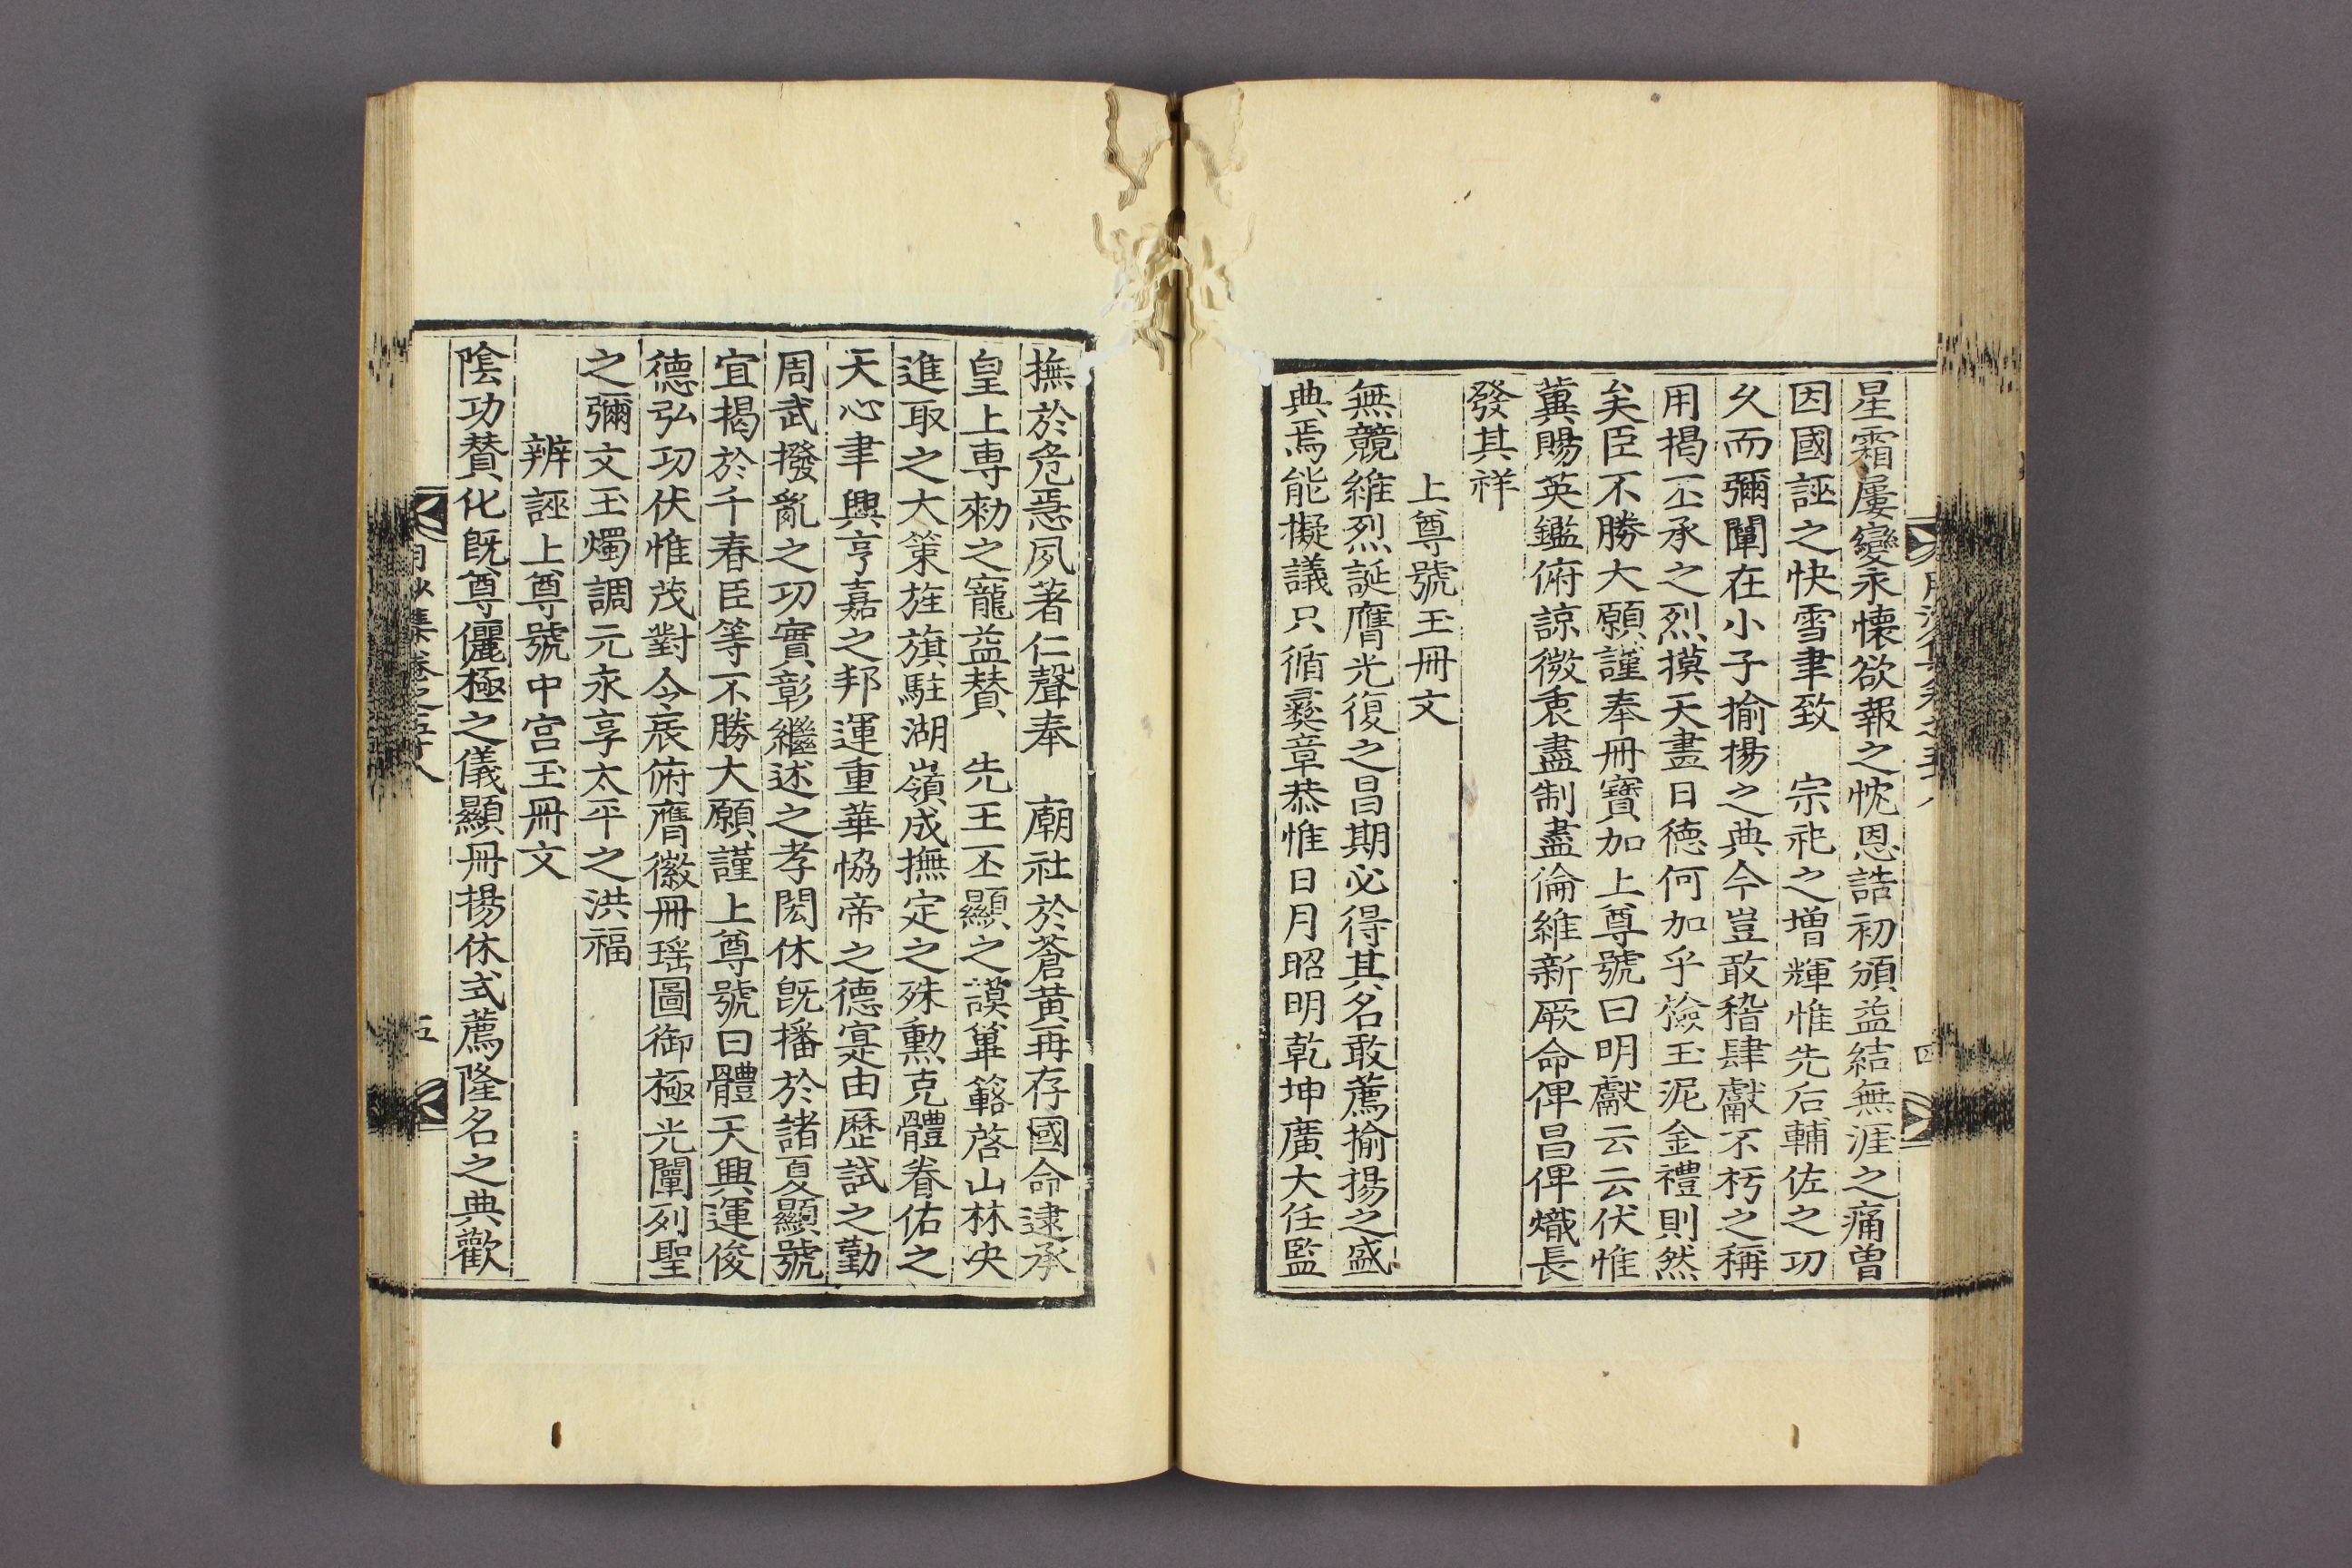 星霜屢變永懷欲報之忱恩誥初頒益結無涯之痛曾
因國誣之快雪聿致 宗祀之增輝惟先后輔佐之功
久而彌闡在小子揄揚之典今豈敢稽肆獻不朽之稱
用揭丕承之烈摸天畫日德何加乎檢玉泥金禮則然
矣臣不勝大願謹奉冊寶加上尊號曰明獻云云伏惟
冀賜英鑑俯諒微衷盡制盡倫維新厥命俾昌俾熾長
發其祥
上尊號玉冊文
無競維烈誕膺光復之昌期必得其名敢薦揄揚之盛
典焉能擬議只循彝章恭惟日月昭明乾坤廣大任監
四
撫於危惡夙著仁聲奉 廟社於蒼黃再存國命逮承
皇上專勑之寵益贊 先王丕顯之謨蓽簵啓山林央
進取之大策旌旗駐湖嶺成撫定之殊勳克體眷佑之
天心聿興亨嘉之邦運重華協帝之德寔由歷試之勤
周武撥亂之功實彰繼述之孝閎休旣播於諸夏顯號
宜揭於千春臣等不勝大願謹上尊號曰體天興運俊
德弘功伏惟茂對令辰俯膺徽冊瑤圖御極光闡列聖
之彌文玉燭調元永享太平之洪福
辨誣上尊號中宮玉冊文
陰功贊化旣尊儷極之儀顯冊揚休式薦隆名之典歡
月沙集卷之五十八
五